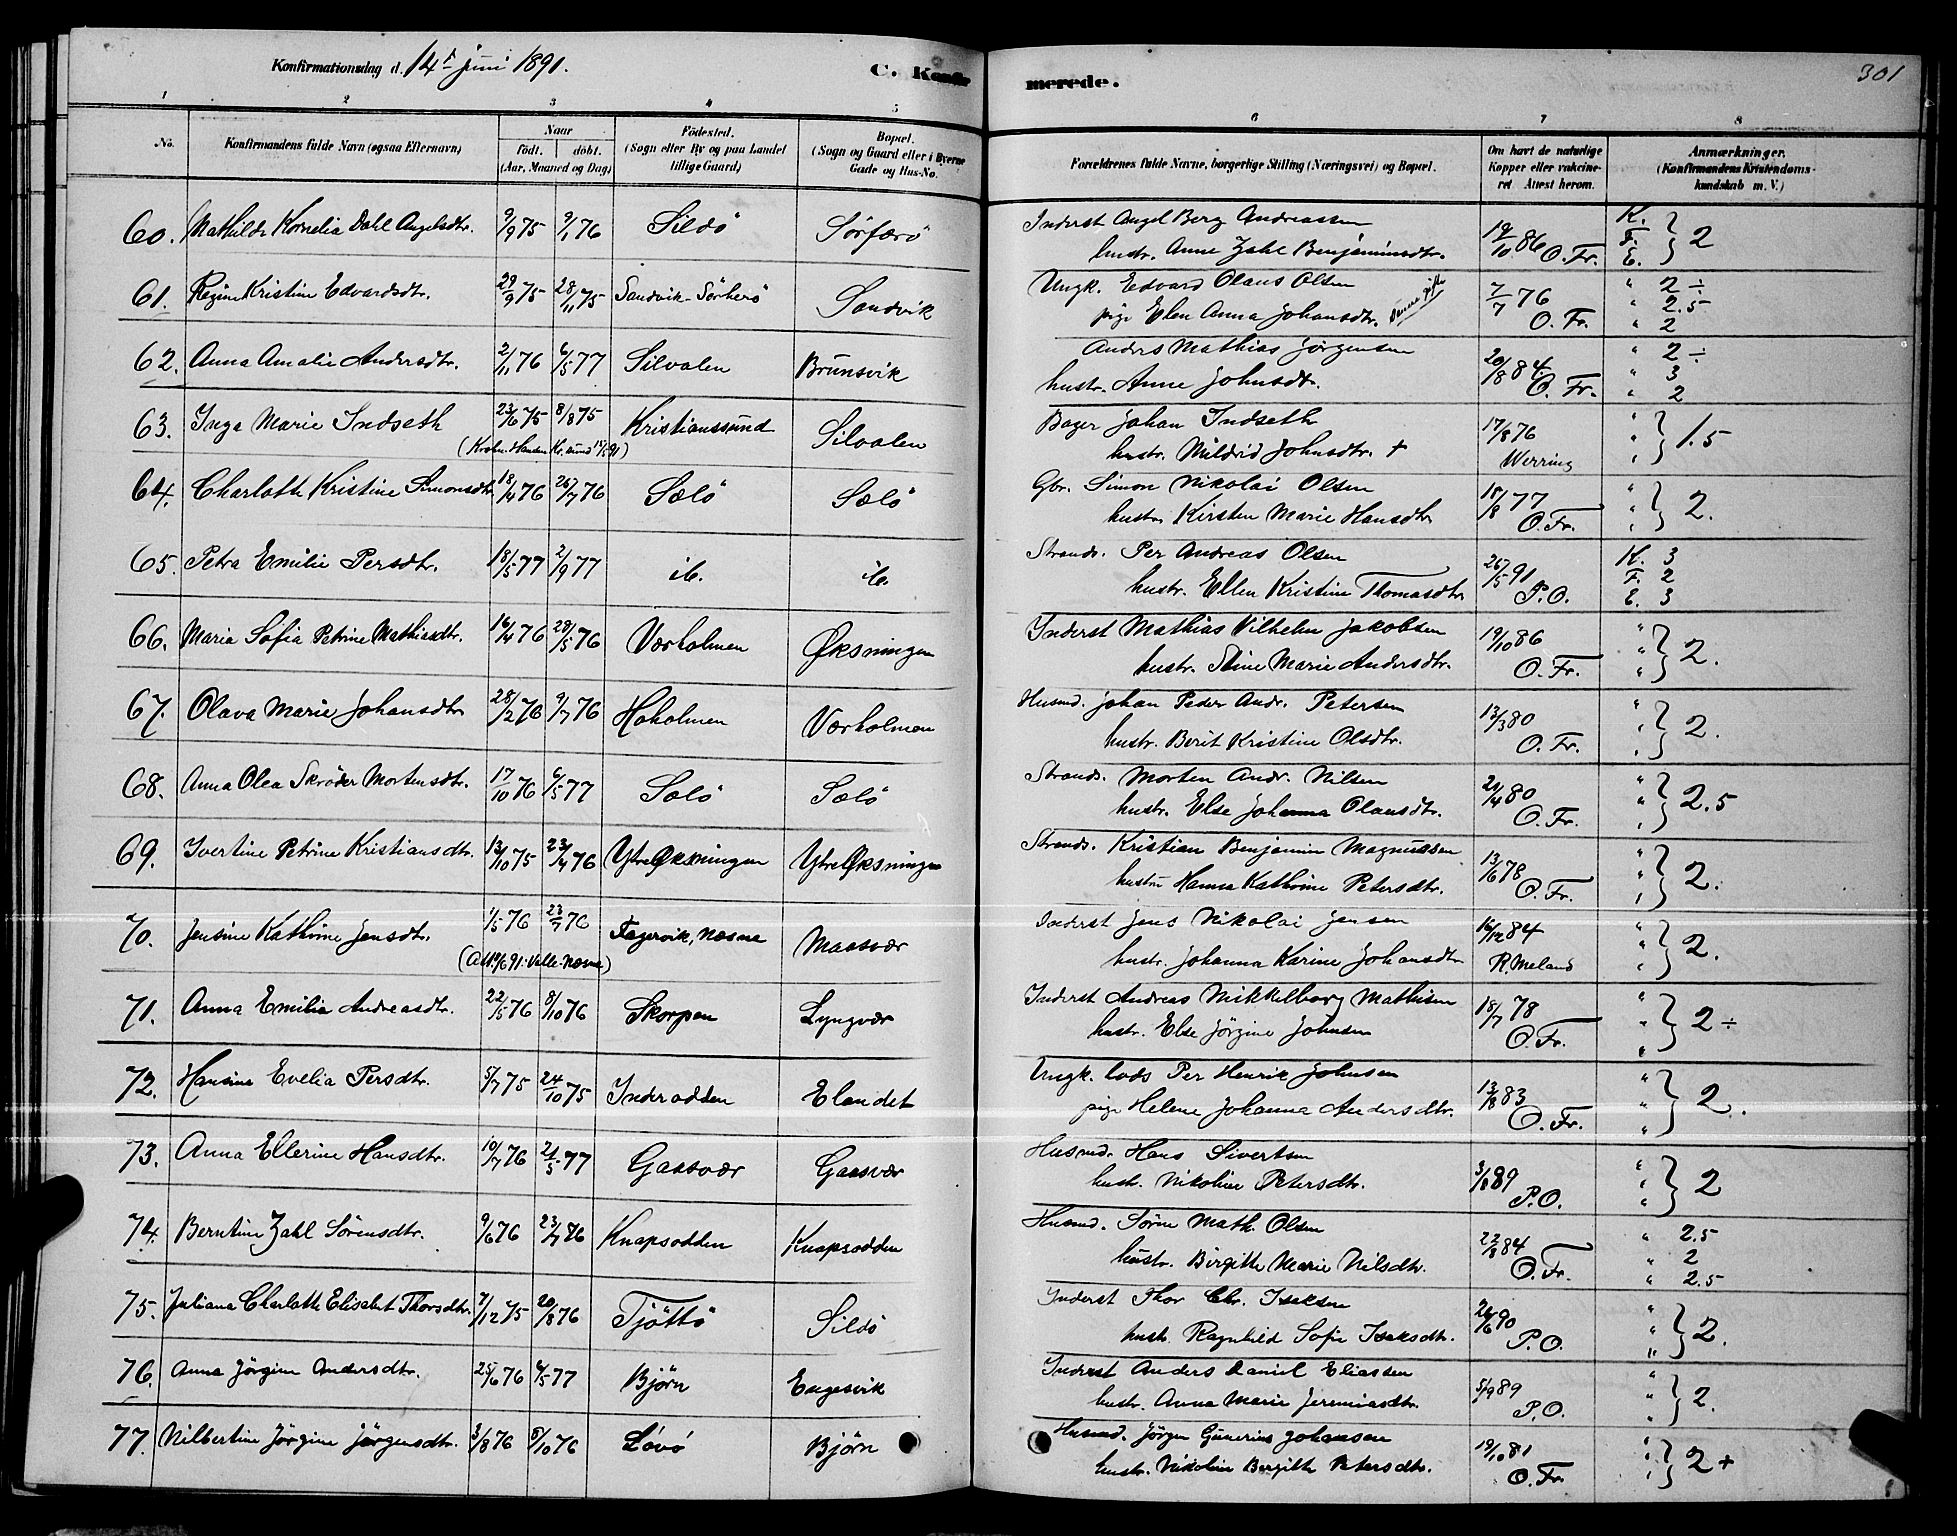 Konfirmationsdag d. 14de juni 1891.
C. Konfir
merede.
301
1 2 3 4 5 6 7 8
No.
Konfirmandens fulde Navn (ogsaa Efternavn)
Naar
födt. döbt.
(Aar, Maaned og Dag)
Födested.
(Sogn eller By og paa Landet
tillige Gaard)
Bopæl.
(Sogn og Gaard eller i Byerne
Gade og Hus-No.
Forældrenes fulde Navne, borgerlige Stilling (Næringsvei) og Bopæl.
Om havt de naturlige
Kopper eller vakcine-
ret Attest herom.
Anmærkninger.
(Konfirmandens Kristendoms-
kundskab m. V.)
60. Mathilde Kornelia Dahl Angelsdtr. 9/9 75 9/1 76 Sildö Sörfærö
Inderst Angel Berg Andreassen
hustr. Anne Zahl Benjaminsdtr. 19/10 86 O. Fr. K. F. E. } 2
61. Regine Kristine Edvardsdtr. 29/9 75 28/11 75 Sandvik-Sörherö Sandvik
Ungk. Edvard Olaus Olsen
pige Elen Anna Johansdtr. 7/7 76 O. Fr. " 2 ÷ " 2.5 " 2
62. Anna Amalie Andersdtr. 2/11 76 6/5 77 Silvalen Brunsvik
Anders Mathias Jörgensen
hustr. Anne Johnsdtr. 20/8 84. O. Fr. " 2 ÷ " 3 " 2
63. Inga Marie Indseth 23/6 75 8/8 75 Kristianssund Silvalen
Bager Johan Indseth
hustr. Mildrid Johnsdtr. + 17/8 76 Werring " " " } 1.5
64. Charlotte Kristine Simonsdtr 18/4 76 26/7 76 Sælö Sælö
Gbr. Simon Nikolai Olsen
hustr. Kirsten Marie Hansdtr 18/8 77 O. Fr. " " " } 2.
65. Petra Emilie Persdtr. 18/5 77 2/9 77 ib. ib.
Strands. Per Andreas Olsen
hustr. Ellen Kristine Thomasdtr 26/5 91 P.O. K. 3 F. 2 E. 3
66. Maria Sofia Petrine Mathiasdtr. 16/4 76 28/5 76 Værholmen Øksningen
Inderst Mathias Vilhelm Jakobsen
hustr. Stine Marie Andersdtr. 19/10 86 O. Fr. " " " } 2.
67. Olava Marie Johansdtr 28/2 76 9/7 76 Hoholmen Værholmen
Husmd. Johan Peder Andr. Petersen
hustr. Berit Kristine Olsdtr. 13/3 80 O. Fr. " " " } 2.
68. Anna Olea Skröder Mortensdtr. 17/10 76 6/5 77 Sælö Sælö
Strands. Morten Andr. Nilsen
hustr. Else Johanna Olausdtr. 21/4 80 O. Fr. " " " } 2.5
69. Ivertine Petrine Kristiansdtr. 13/10 75 23/4 76 Ytre Øksningen Ytre Øksningen
Strands. Kristian Benjamin Magnussen
hustru Hanna Kathrine Petersdtr. 13/6 78 O. Fr. " " " } 2.
70. Jensine Kathrine Jensdtr. 1/5 76 23/7 76 Fagervik, Næsna Maasvær
Inderst Jens Nikolai Jensen
hustr. Johanna Karine Johansdtr 16/12 84 R. Meland " " " } 2.
71. Anna Emilia Andreasdtr. 22/5 76 8/10 76 Skorpen Lyngvær
Inderst Andreas Mikkelborg Mathisen
hustr. Else Jörgine Johnsen 18/7 78 O. Fr. " " " } 2 ÷
72. Hansina Evelia Persdtr. 5/7 75 24/10 75 Inderodden Elandet
Ungk. Lods Per Henrik Johnsen
pige Helene Johanna Andersdtr. 13/8 83 O. Fr. " " " } 2.
73. Anna Ellerine Hansdtr. 19/7 76 21/5 77 Gaasvær Gaasvær
Husmd. Hans Sivertsen
hustr. Nikoline Petersdtr. 3/8 89 P.O. " " " } 2
74. Berntine Zahl Sörensdtr. 9/6 76 23/7 76 Knapsodden Knapsodden
Husmd. Sörne Math. Olsen
hustr. Birgitte Marie Nilsdtr. 22/8 84 O. Fr. " 2.5 " 2 " 2.5
75. Juliana Charlotte Elisabet Thorsdtr. 7/12 75 20/8 76 Tjöttö Sildö
Inderst Thor Chr. Isaksen
hustr Ragnhild Sofie Isaksdtr. 26/6 90 P.O. " " " } 2.
76. Anna Jörgine Andersdtr. 25/6 76 6/5 77 Björn Engesvik
Inderst Anders Daniel Eliassen
hustr. Anna Marie Jeremiasdtr. 5/9 89 P.O. " " " } 2.
77. Nilbertine Jörgine Jörgensdtr. 3/8 76 8/10 76 Lövö Björn
Husmd. Jörgen Gunerius Johansen
hustr. Nikoline Bergitte Petersdtr. 19/10 81 O. Fr. " " " } 2 +